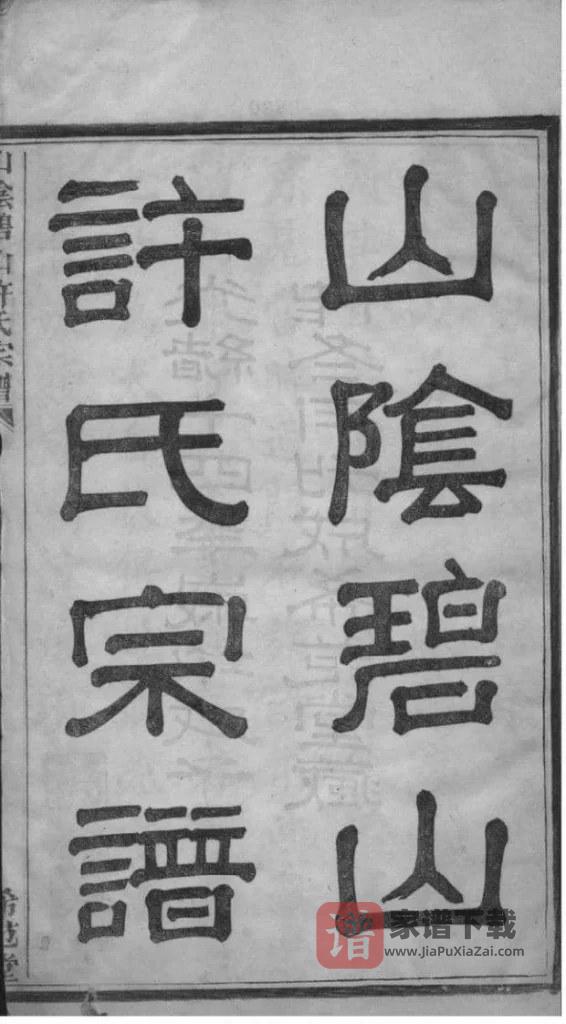 山陰碧山
許氏宗譜
山陰碧山許氏宗譜
譜
家谱下载
www.JiaPuXiaZai.com